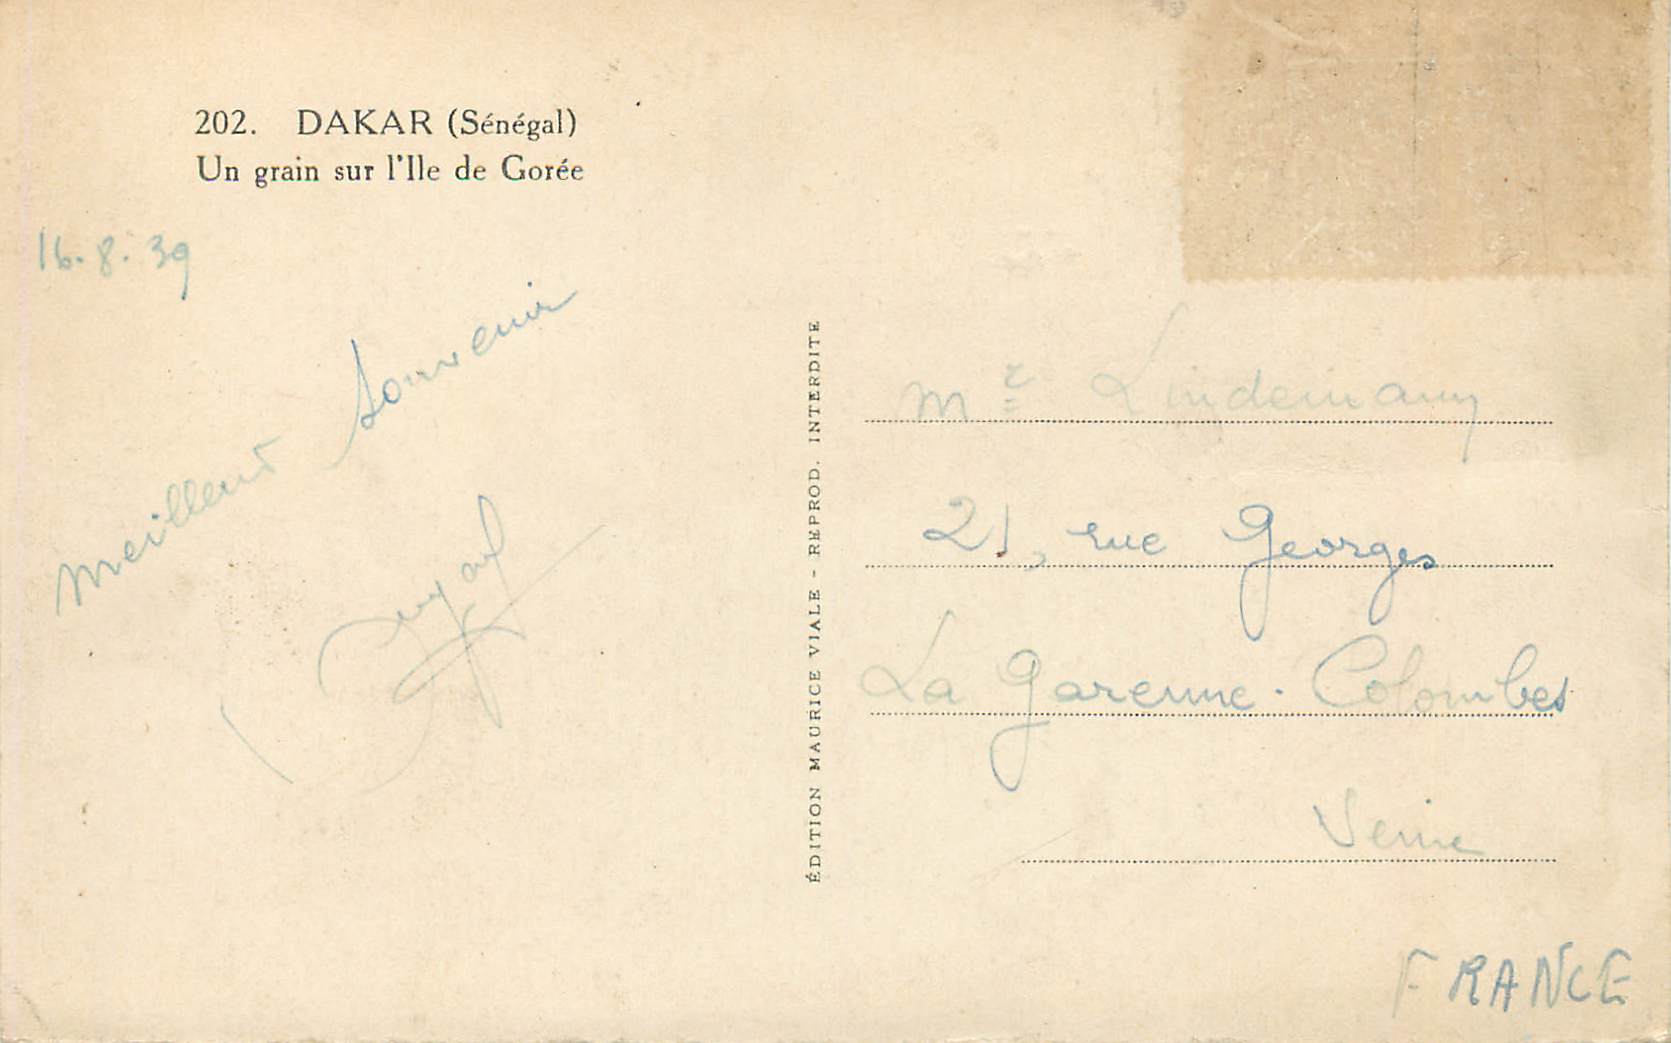 202. DAKAR (Sénégal)
Un grain sur l'Ile de Gorée
16.8.39
Meilleur Souvenir
ÉDITION MAURICE VIALE - REPROD. INTERDITE
Mr Lindemann
21, rue Georges
La Garenne. Colombes
Seine
FRANCE